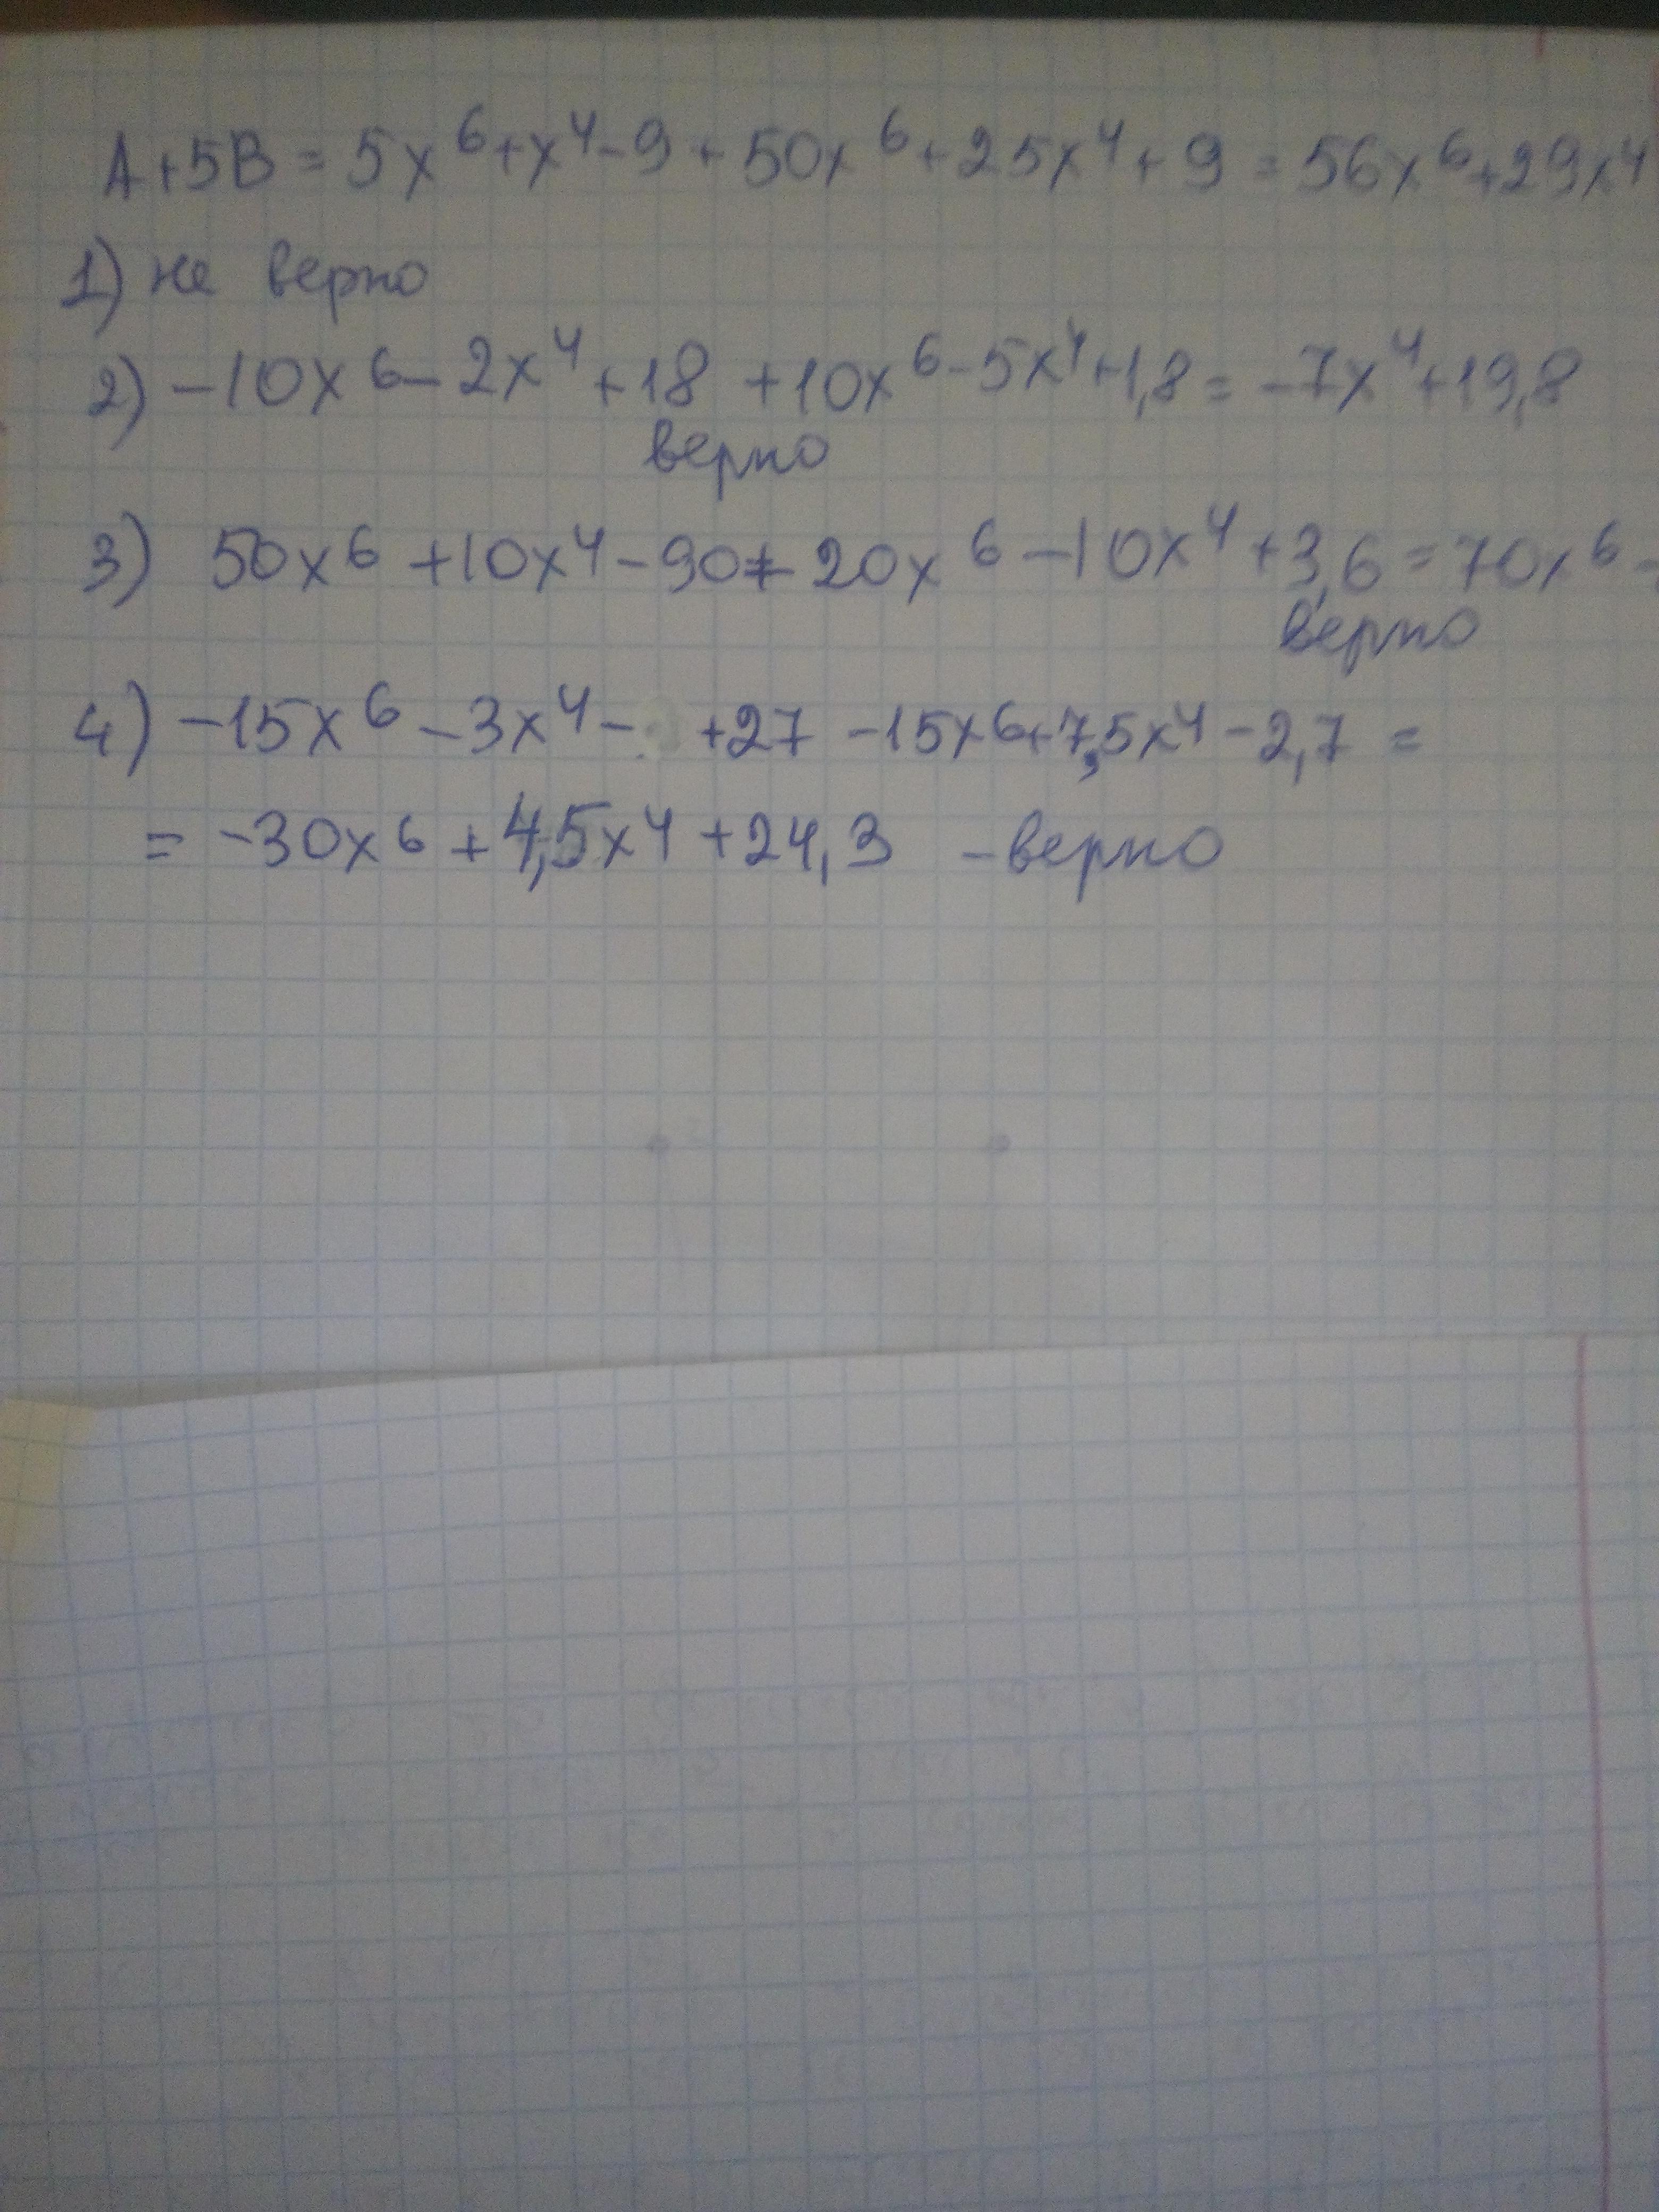 A+5B=5x⁶+x⁴-9+50x⁶+25x⁴+9=56x⁶+29x⁴
1) не верно
2) -10x⁶-2x⁴+18+10x⁶-5x⁴+1,8=-7x⁴+19,8
верно
3) 50x⁶+10x⁴-90+20x⁶-10x⁴+3,6=70x⁶-
верно
4) -15x⁶-3x⁴- +27-15x⁶+7,5x⁴-2,7=
=-30x⁶+4,5x⁴+24,3 -верно